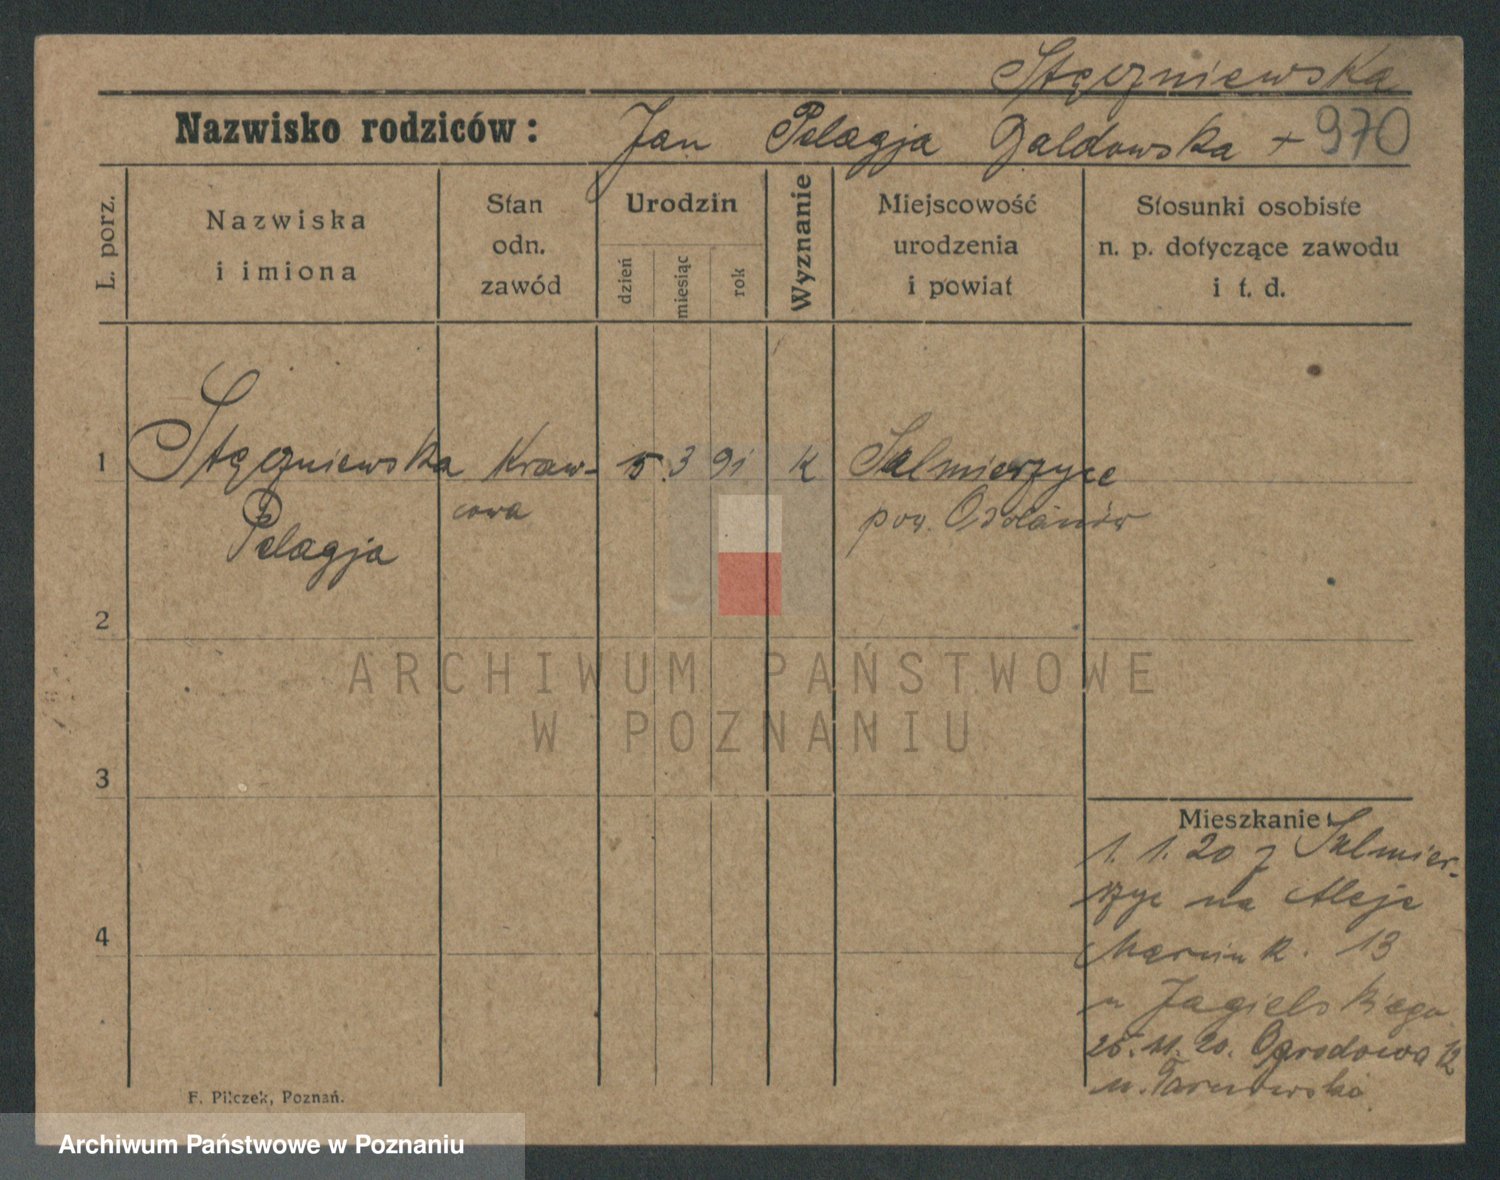 Stęczniewska
Nazwisko rodziców: Jan Pelagja Galdowska + 970
L. porz.
Nazwiska
i imiona
Stan
odn.
zawód
Urodzin
dzień
miesiąc
rok
Wyznanie
Miejscowość
urodzenia
i powiat
Stosunki osobiste
n. p. dotyczące zawodu
i t. d.
1 Stęczniewska Kraw- 15. 3 91 k Sulmierzyce
Pelagja cowa pow. Odolanów
2
3
4
ARCHIWUM PAŃSTWOWE
W POZNANIU
Mieszkanie
1. 1. 20 z Sulmier-
zyc na Aleje
Marcink. 13
u Jagielskiego
25. 11. 20. Ogrodowa 12
u. Tarnowska
F. Pilczek, Poznań.
Archiwum Państwowe w Poznaniu